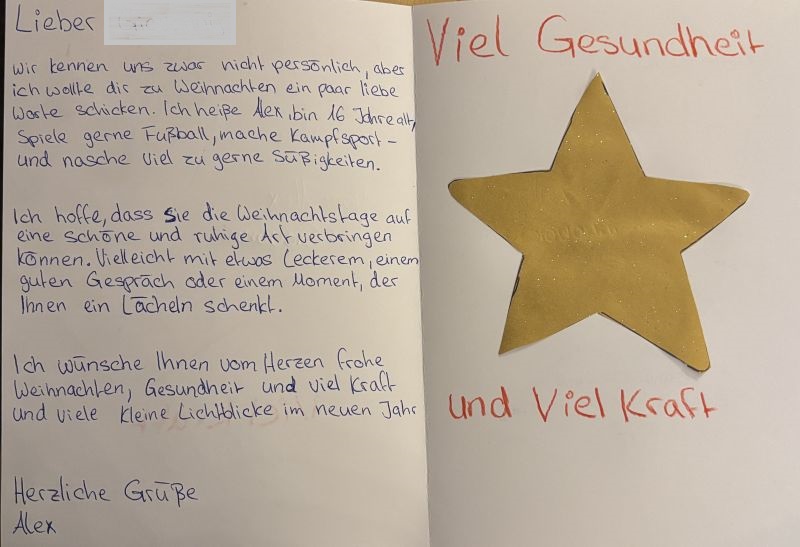 Lieber
wir kennen uns zwar nicht persönlich, aber
ich wollte dir zu Weihnachten ein paar liebe
Worte schicken. Ich heiße Alex, bin 16 Jahre alt,
Spiele gerne Fußball, mache Kampfsport –
und nasche viel zu gerne Süßigkeiten.
Ich hoffe, dass Sie die Weihnachtstage auf
eine schöne und ruhige Art verbringen
können. Vielleicht mit etwas Leckerem, einem
guten Gespräch oder einem Moment, der
Ihnen ein Lächeln schenkt.
Ich wünsche Ihnen vom Herzen frohe
Weihnachten, Gesundheit und viel Kraft
und viele kleine Lichtblicke im neuen Jahr
Herzliche Grüße
Alex
Viel Gesundheit
und Viel Kraft